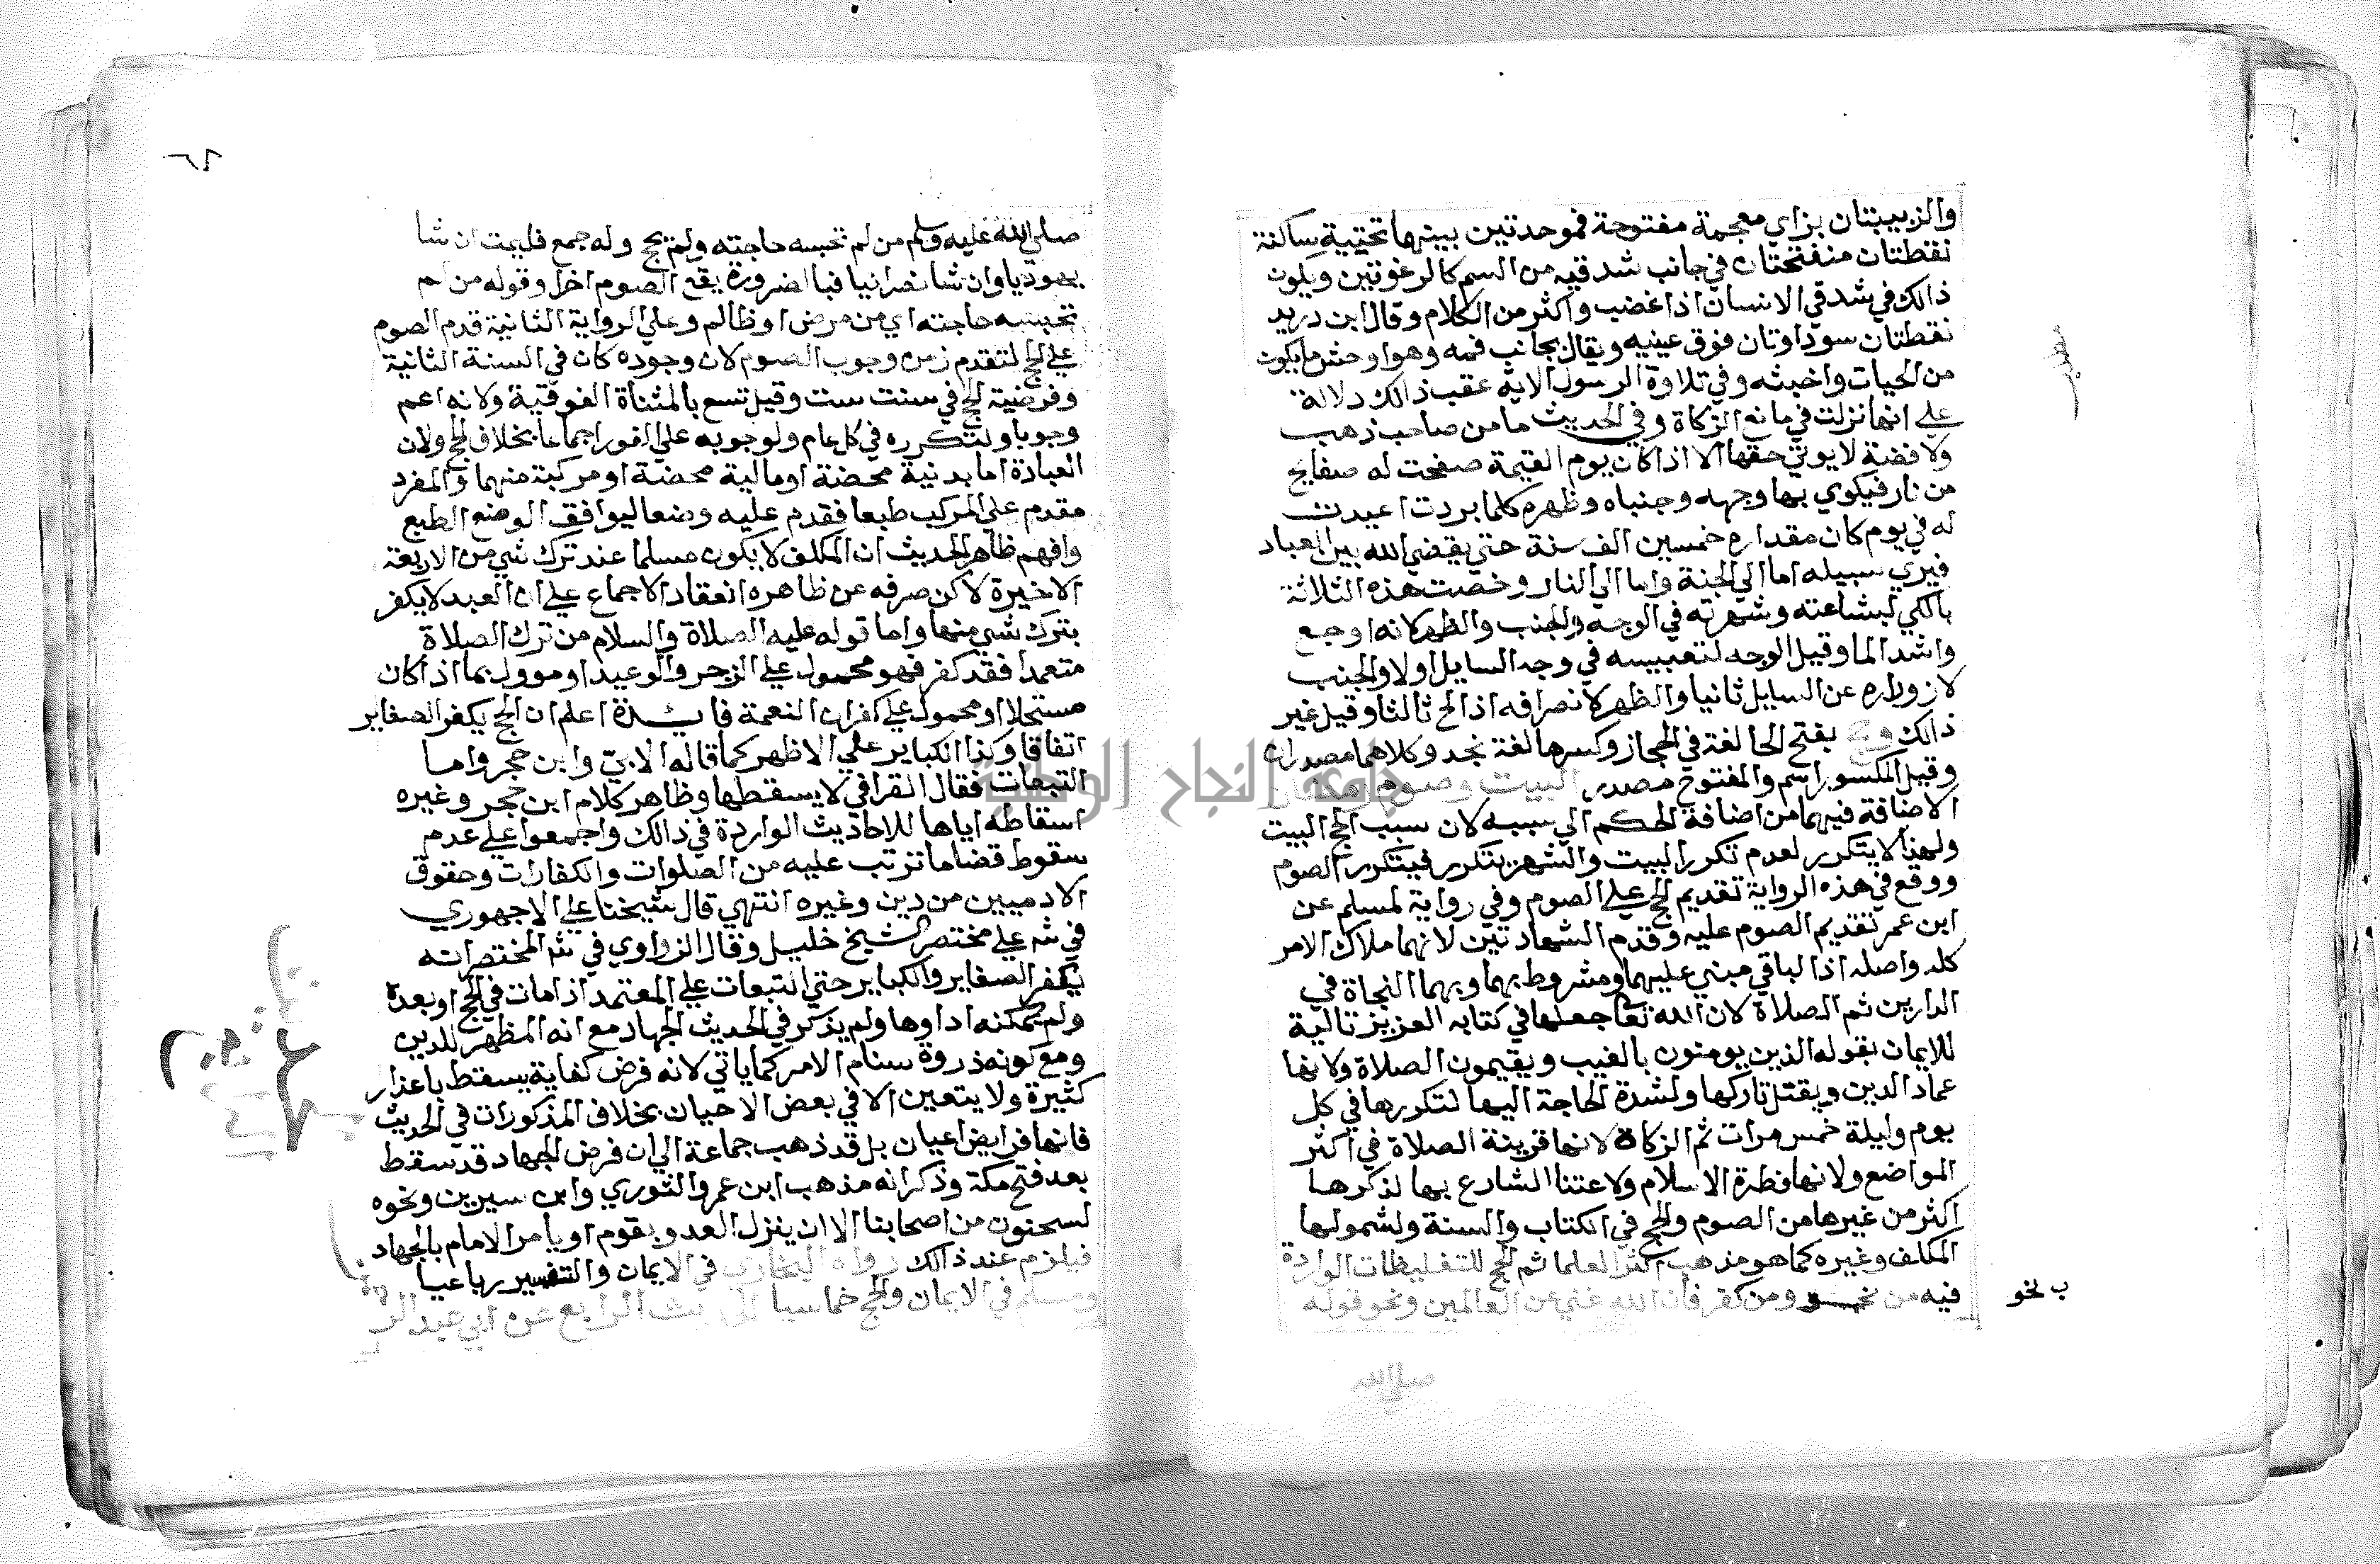 والزبيبتان بزاي معجمة مفتوحة فموحدتين بينهما تحتية ساكنة
نقطتان منفتحتان في جانب شدقيه من السم كالرغوتين ويكون
ذالك في شدقي الانسان اذا غضب واكثر من الكلام وقال ابن دريد
نقطتان سوداوتان فوق عينيه ويقال بجانب فمه وهو اوحش ما يكون
من الحيات واخبثه وفي تلاوة الرسول الاية عقب ذالك دلالة
علي انها نزلت في مانع الزكاة وفي الحديث ما من صاحب ذهب
ولا فضة لا يوتي حقها الا اذا كان يوم القيمة صفحت له صفايح
من نار فيكوي بها وجهه وجنباه وظهره كلما بردت اعيدت
له في يوم كان مقداره خمسين الف سنة حتي يقضي الله بين العباد
فيري سبيله اما الي الجنة واما الي النار وخصت هذه الثلاثة
بالكي لبشاعته وشهرته في الوجه والجنب والظهر لانه اوجع
واشد الما وقيل الوجه لتعبيسه في وجه السايل اولا والجنب
لازوراره عن السايل ثانيا والظهر لانصرافه اذا الح ثالثا وقيل غير
ذالك وحج بفتح الحا لغة في الحجاز وكسرها لغة نجد وكلاهما مصدران
وقيل المكسور اسم والمفتوح مصدر البيت وصوم رمضان
الاضافة فيهما من اضافة الحكم الي سببه لان سبب الحج البيت
ولهذا لا يتكرر لعدم تكرر البيت والشهر يتكرر فيتكرر الصوم
ووقع في هذه الرواية تقديم الحج علي الصوم وفي رواية لمسلم عن
ابن عمر تقديم الصوم عليه وقدم الشهادتين لانهما ملاك الامر
كله واصله اذ الباقي مبني عليهما ومشروط بهما وبهما النجاة في
الدارين ثم الصلاة لان الله تعا جعلها في كتابه العزيز تالية
للايمان بقوله الذين يومنون بالغيب ويقيمون الصلاة ولانها
عماد الدين ويقتل تاركها ولشدة الحاجة اليها لتكررها في كل
يوم وليلة خمس مرات ثم الزكاة لانها قرينة الصلاة في اكثر
المواضع ولانها فطرة الاسلام ولاعتنا الشارع بها لذكرها
اكثر من غيرها من الصوم والحج في الكتاب والسنة ولشمولها
المكلف وغيره كما هو مذهب اكثر العلما ثم الحج للتغليظات الواردة
فيه من نحو ومن كفر فان الله غني عن العالمين ونحو قوله
ب نحو
صلي الله
صلي الله عليه وسلم من لم تحبسه حاجته ولم يحج وله جمع فليمت ان شا
يهوديا وان شا نصرانيا فبالضرورة يقع الصوم اخرا وقوله من لم
تحبسه حاجته اي من مرض او ظالم وعلي الرواية الثانية قدم الصوم
علي الحج لتقدم زمن وجوب الصوم لان وجوده كان في السنة الثانية
وفرضية الحج في سنت ست وقيل تسع بالمثناة الفوقية ولانه اعم
وجوبا ولتكرره في كل عام ولوجوبه علي الفور اجماعا بخلاف الحج ولان
العبادة اما بدنية محضة او مالية محضة او مركبة منهما والمفرد
مقدم علي المركب طبعا فقدم عليه وضعا ليوافق الوضع الطبع
وافهم ظاهر الحديث ان المكلف لا يكون مسلما عند ترك شي من الاربعة
الاخيرة لاكن صرفه عن ظاهره انعقاد الاجماع علي ان العبد لا يكفر
بترك شي منها واما قوله عليه الصلاة والسلام من ترك الصلاة
متعمدا فقد كفر فهو محمول علي الزجر والوعيد او موول بما اذا كان
مستحلا او محمول علي كفران النعمة فايدة اعلم ان الحج يكفر الصغاير
اتفاقا وكذا الكباير علي الاظهر كما قاله الابي وابن حجر واما
التبعات فقال القرافي لا يسقطها وظاهر كلام ابن حجر وغيره
اسقاطه اياها للاحاديث الواردة في ذالك واجمعوا علي عدم
سقوط قضا ما ترتب عليه من الصلوات والكفارات وحقوق
الادميين من دين وغيره انتهي قال شيخنا علي الاجهوري
في شه علي مختصر الشيخ خليل وقال الزواوي في شه المختصر انه
يكفر الصغاير والكباير حتي التبعات علي المعتمد اذا مات في الحج او بعده
ولم يمكنه اداوها ولم يذكر في الحديث الجهاد مع انه المظهر للدين
ومع كونه ذروة سنام الامر كما ياتي لانه فرض كفاية يسقط باعذار
كثيرة ولا يتعين الا في بعض الاحيان بخلاف المذكورات في الحديث
فانها فرايض اعيان بل قد ذهب جماعة الي ان فرض الجهاد قد سقط
بعد فتح مكة وذكر انه مذهب ابن عمر والثوري وابن سيرين ونحوه
لسحنون من اصحابنا الا ان ينزل العدو بقوم او يامر الامام بالجهاد
فيلزم عند ذالك رواه البخاري في الايمان والتفسير رباعيا
ومسلم في الايمان والحج خماسيا الحديث الرابع عن ابي عبد الر